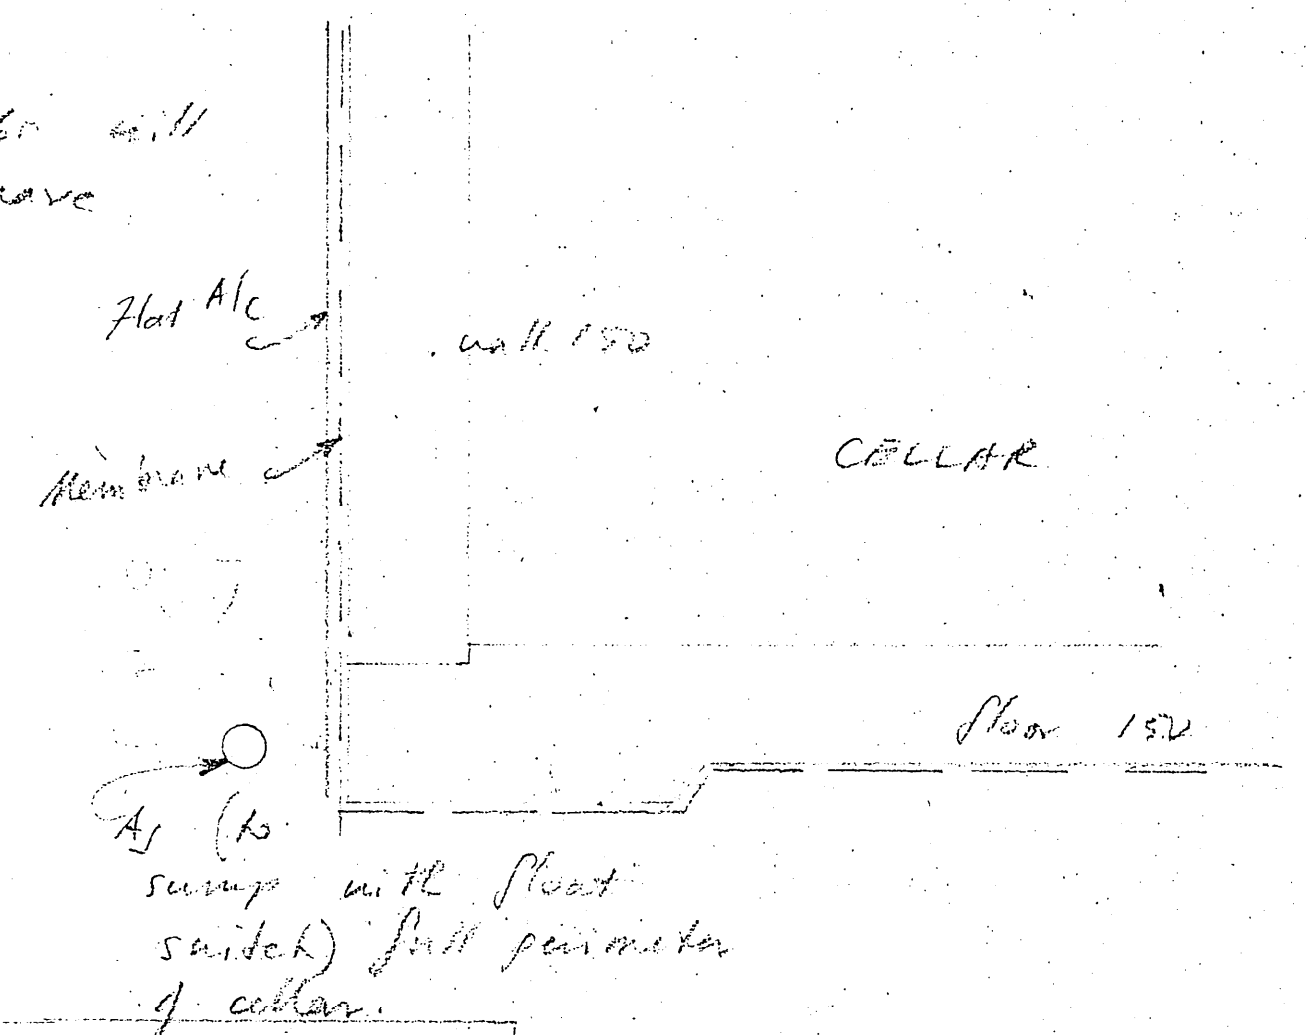 will
Flat A/c
wall 150
Membrane
CELLAR
floor 150
(to
sump with float
switch) full perimeter
of cellar.